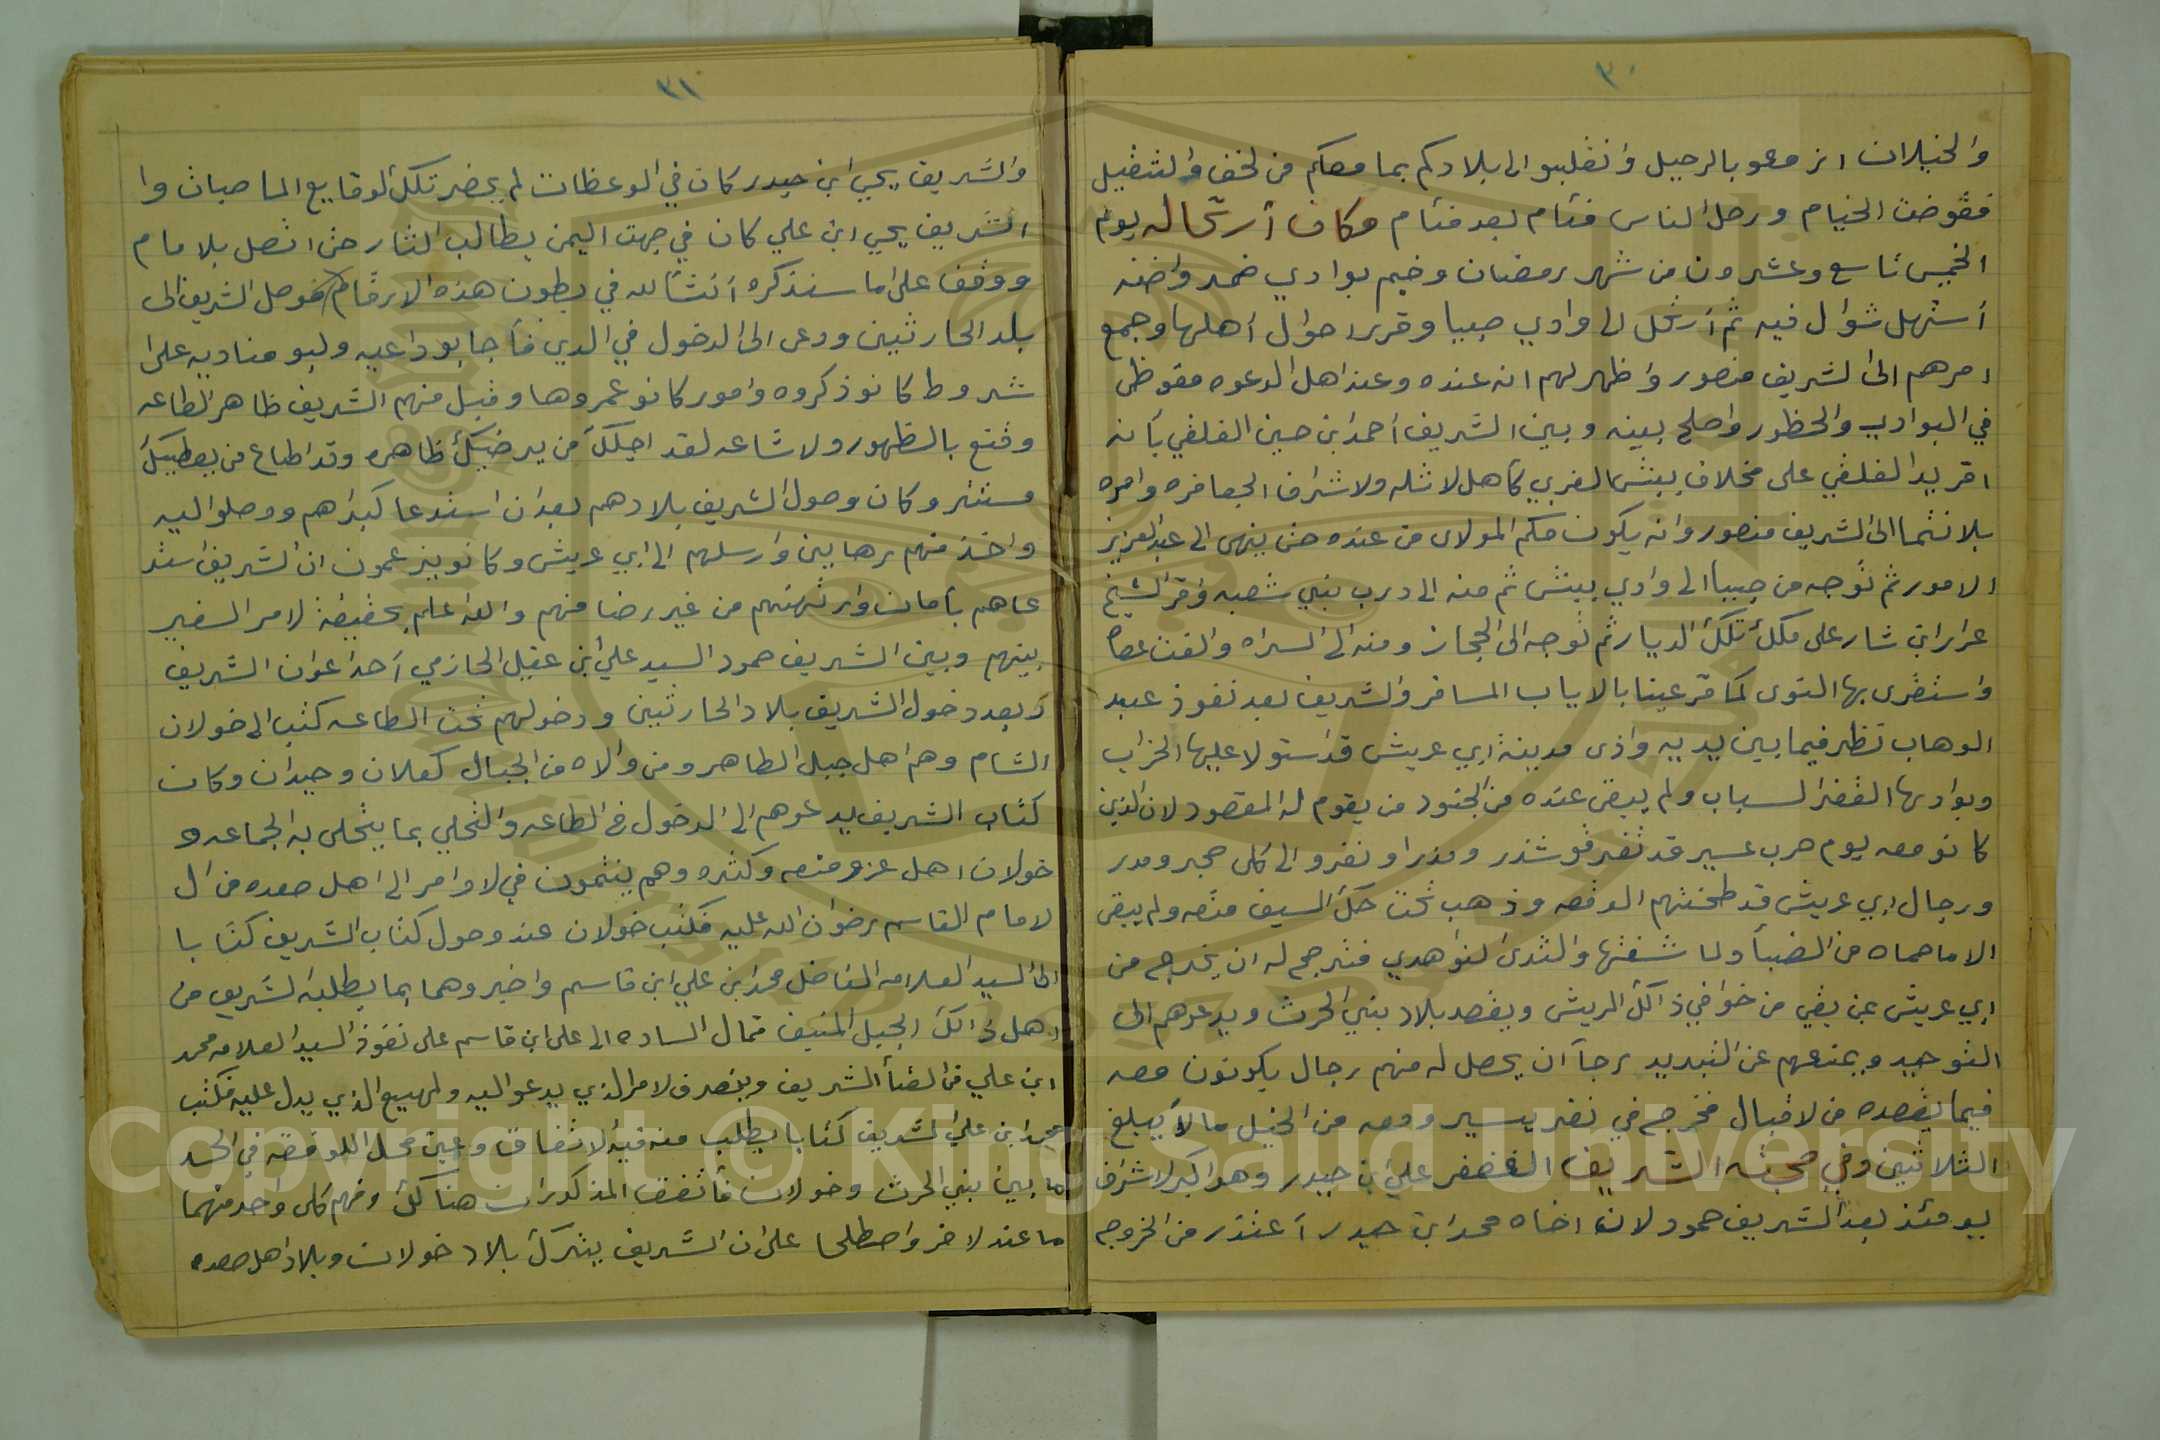 ٣٠
والخيلان ازمعو بالرحيل وانقلبو الى بلادكم بما معكم من لخف والثقيل
فقوضت الخيام ورحل الناس فئام بعد فئام وكان أرتحاله يوم
الخميس تاسع وعشرون من شهر رمضان وخيم بوادي ضمد واضنه
أستهل شوال فيه ثم أرتحل الى وادي صبيا وقرر احوال أهلها وجمع
امرهم الى الشريف منصور واظهر لهم انه عنده وعند اهل الدعوه
في البوادي والحظور واصلح بينه وبين الشريف أحمد ابن حسين الفلقي بأنه
الفلقي على مخلاف بيش الغربي كأهل لاثله ولاشراف الجعافره وامره
بلانتما الى الشريف منصور وانه يكون حكم المولاى من عنده حتى ينهى الى عبدالعزيز
الامور ثم توجه من صبيا الى وادي بيش ثم منه الى درب بني شعبه واقر الشيخ
عرار ابن شار على ملك تلك الديار ثم توجه الى الحجاز ومنه الى السراه والقت عصا
واستقرى بها النوى كما قر عينا بالاياب المسافر والشريف بعد نفوذ عبد
الوهاب نظر فيما بين يديه واذى مدينة ابي عريش قد استولا عليها الخراب
وبوادىها القفر السباب ولم يبقى عنده من الجنود من يقوم له المقصود لان الذين
كانو معه يوم حرب عسير قد تفرقو شذر ومذر او نفرو الى كل حجر ومدر
ورجال ابي عريش قد طحنتهم الوقعه وذهب تحت حك السيف منعه ولم يبقى
الا ماحماه من الضبأ ولما شفتها والثدى النواهدي فترجح له ان يخرج من
ابي عريش بمن بقي من خوافي ذالك الريش ويقصد بلاد بني الحرث ويدعوهم الى
التوحيد ويمنعهم عن التبديد رجاأن يحصل له منهم رجال يكونون معه
فيما يقصده من لاقبال فخرج في نفر يسير ومعه من الخيل مالا يبلغ
الثلاثين وفي صحبته الشريف الغضفر علي ابن حيدر وهو اكبر لاشراف
يومئذ بعد الشريف حمود لان اخاه محمد ابن حيدر أعتذر من الخروج
٣١
والشريف يحي ابن حيدر كان في الوعظات لم يحضر تلك الوقايع الما صبات وا
الشريف يحي ابن علي كان في جهت اليمن يطالب الثار حتى اتصل بلامام
ووقف على ما سنذكره أنشأالله في بطون هذه الارقام فوصل الشريف الى
بلد الحارثين ودعى الى الدخول في الدين فأجابو داعيه ولبو مناديه على
شروط كانو ذكروه وامور كانو عمروها وقبل منهم الشريف ظاهر الطاعه
وقنع بالظهور ولاشاعه لقد اجلك من يرضيك ظاهره وقد اطاع من يعطيك
مستتر وكان وصول الشريف بلادهم بعد ان استدعا كبراهم ووصلو اليه
واخذ منهم رهاين وارسلهم الى ابي عريش وكانو يزعمون ان الشريف استد
عاهم بأمان وارتهنهم من غير رضا منهم والله اعلم بحقيقة لامر السفير
بينهم وبين الشريف حمود السيد علي ابن عقيل الحازمي أحد اعوان الشريف
وبعد دخول الشريف بلاد الحارثين ودخولهم تحت الطاعه كتب الى خولان
الشام وهم اهل جبل الطاهر ومن والاه من الجبال كعلان وحيدان وكان
كتاب الشريف يدعوهم الى الدخول في الطاعه والتحلي بما يتحلى به الجماعه و
خولان اهل عز ومنعه وكثره وهم ينتمون في لاوامر الى اهل صعده من ال
لامام القاسم رضوان الله عليه فكتب خولان عند وصول كتاب الشريف كتابا
الى السيد العلامه الفاضل محمد ابن علي ابن قاسم واخبروهما بما يطلبه الشريف من
اهل ذالك الجبل المنيف فمال الساده الى على ابن قاسم على نفوذ السيد العلامه محمد
ابن علي من الشريف وينصرف لامر الذي يدعو اليه ولمهيع الذي يدل عليه فكتب
محمد ابن علي الشريف كتابا يطلب منه فيه لاتفاق وعين محل اللوقفه في الحد
ما بين بني الحرث وخولان فأتفق المذكوران هنالك وفهم كل واحد منهما
ما عند لاخر واصطلحا على ان الشريف يترك بلاد خولان وبلاد اهل صعده
Copyright © King Saud University